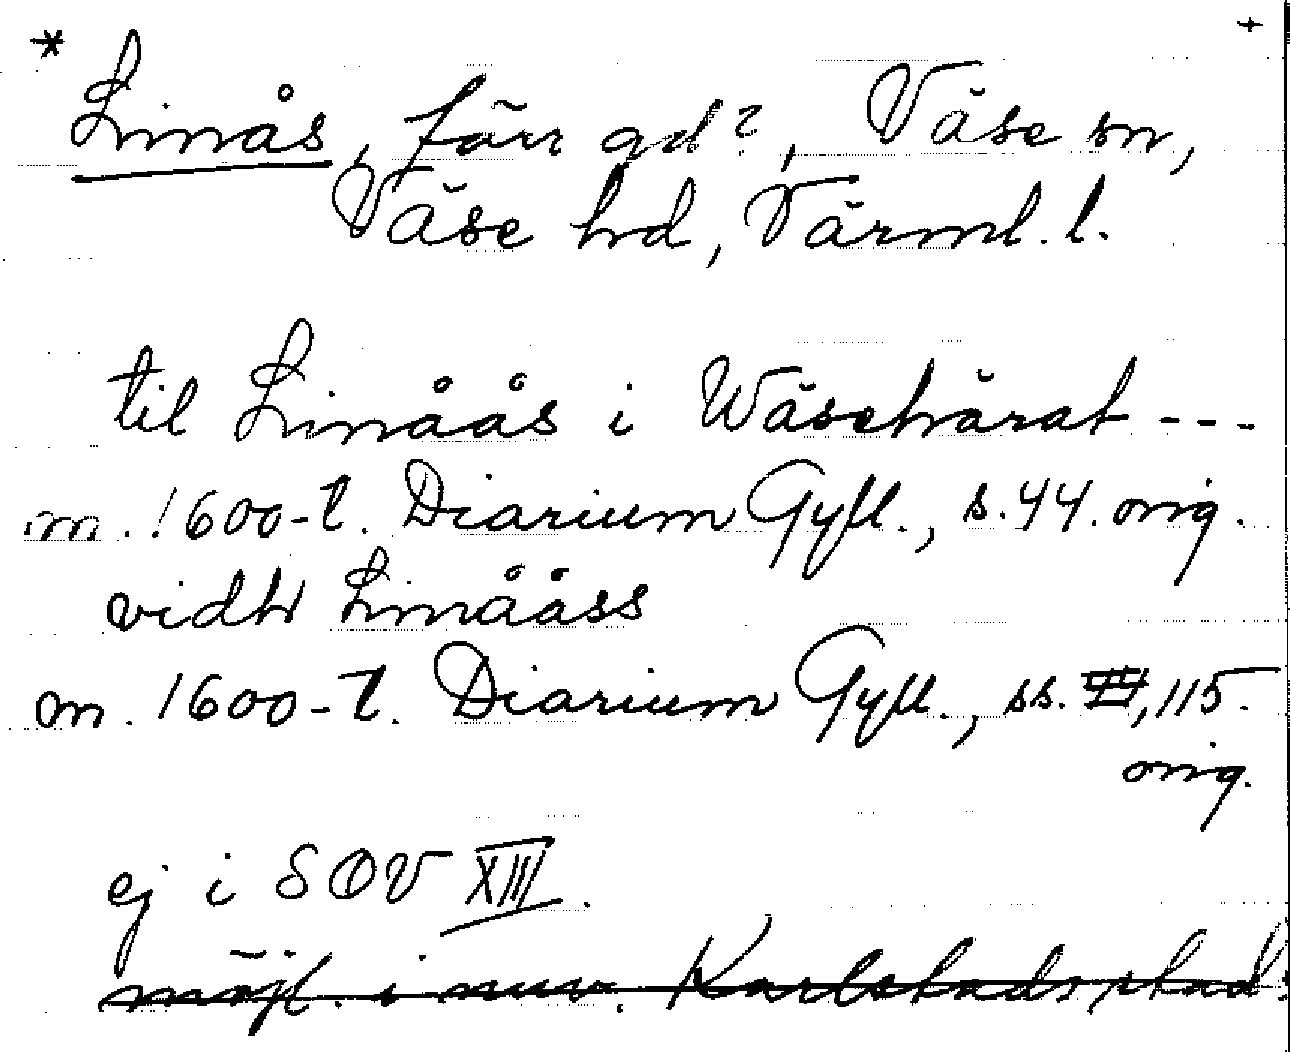 * +
Linås, förr gd?, Väse sn,
Väse hd, Värml. l.
til Linåås i Wäsehärat ---
m. 1600-t. Diarium Gyll., s. 44. orig.
vidh Linååss
m. 1600-t. Diarium Gyll., ss. , 115.
orig.
ej i SOV XIII.
möjl. i nuv. Karlstads stad